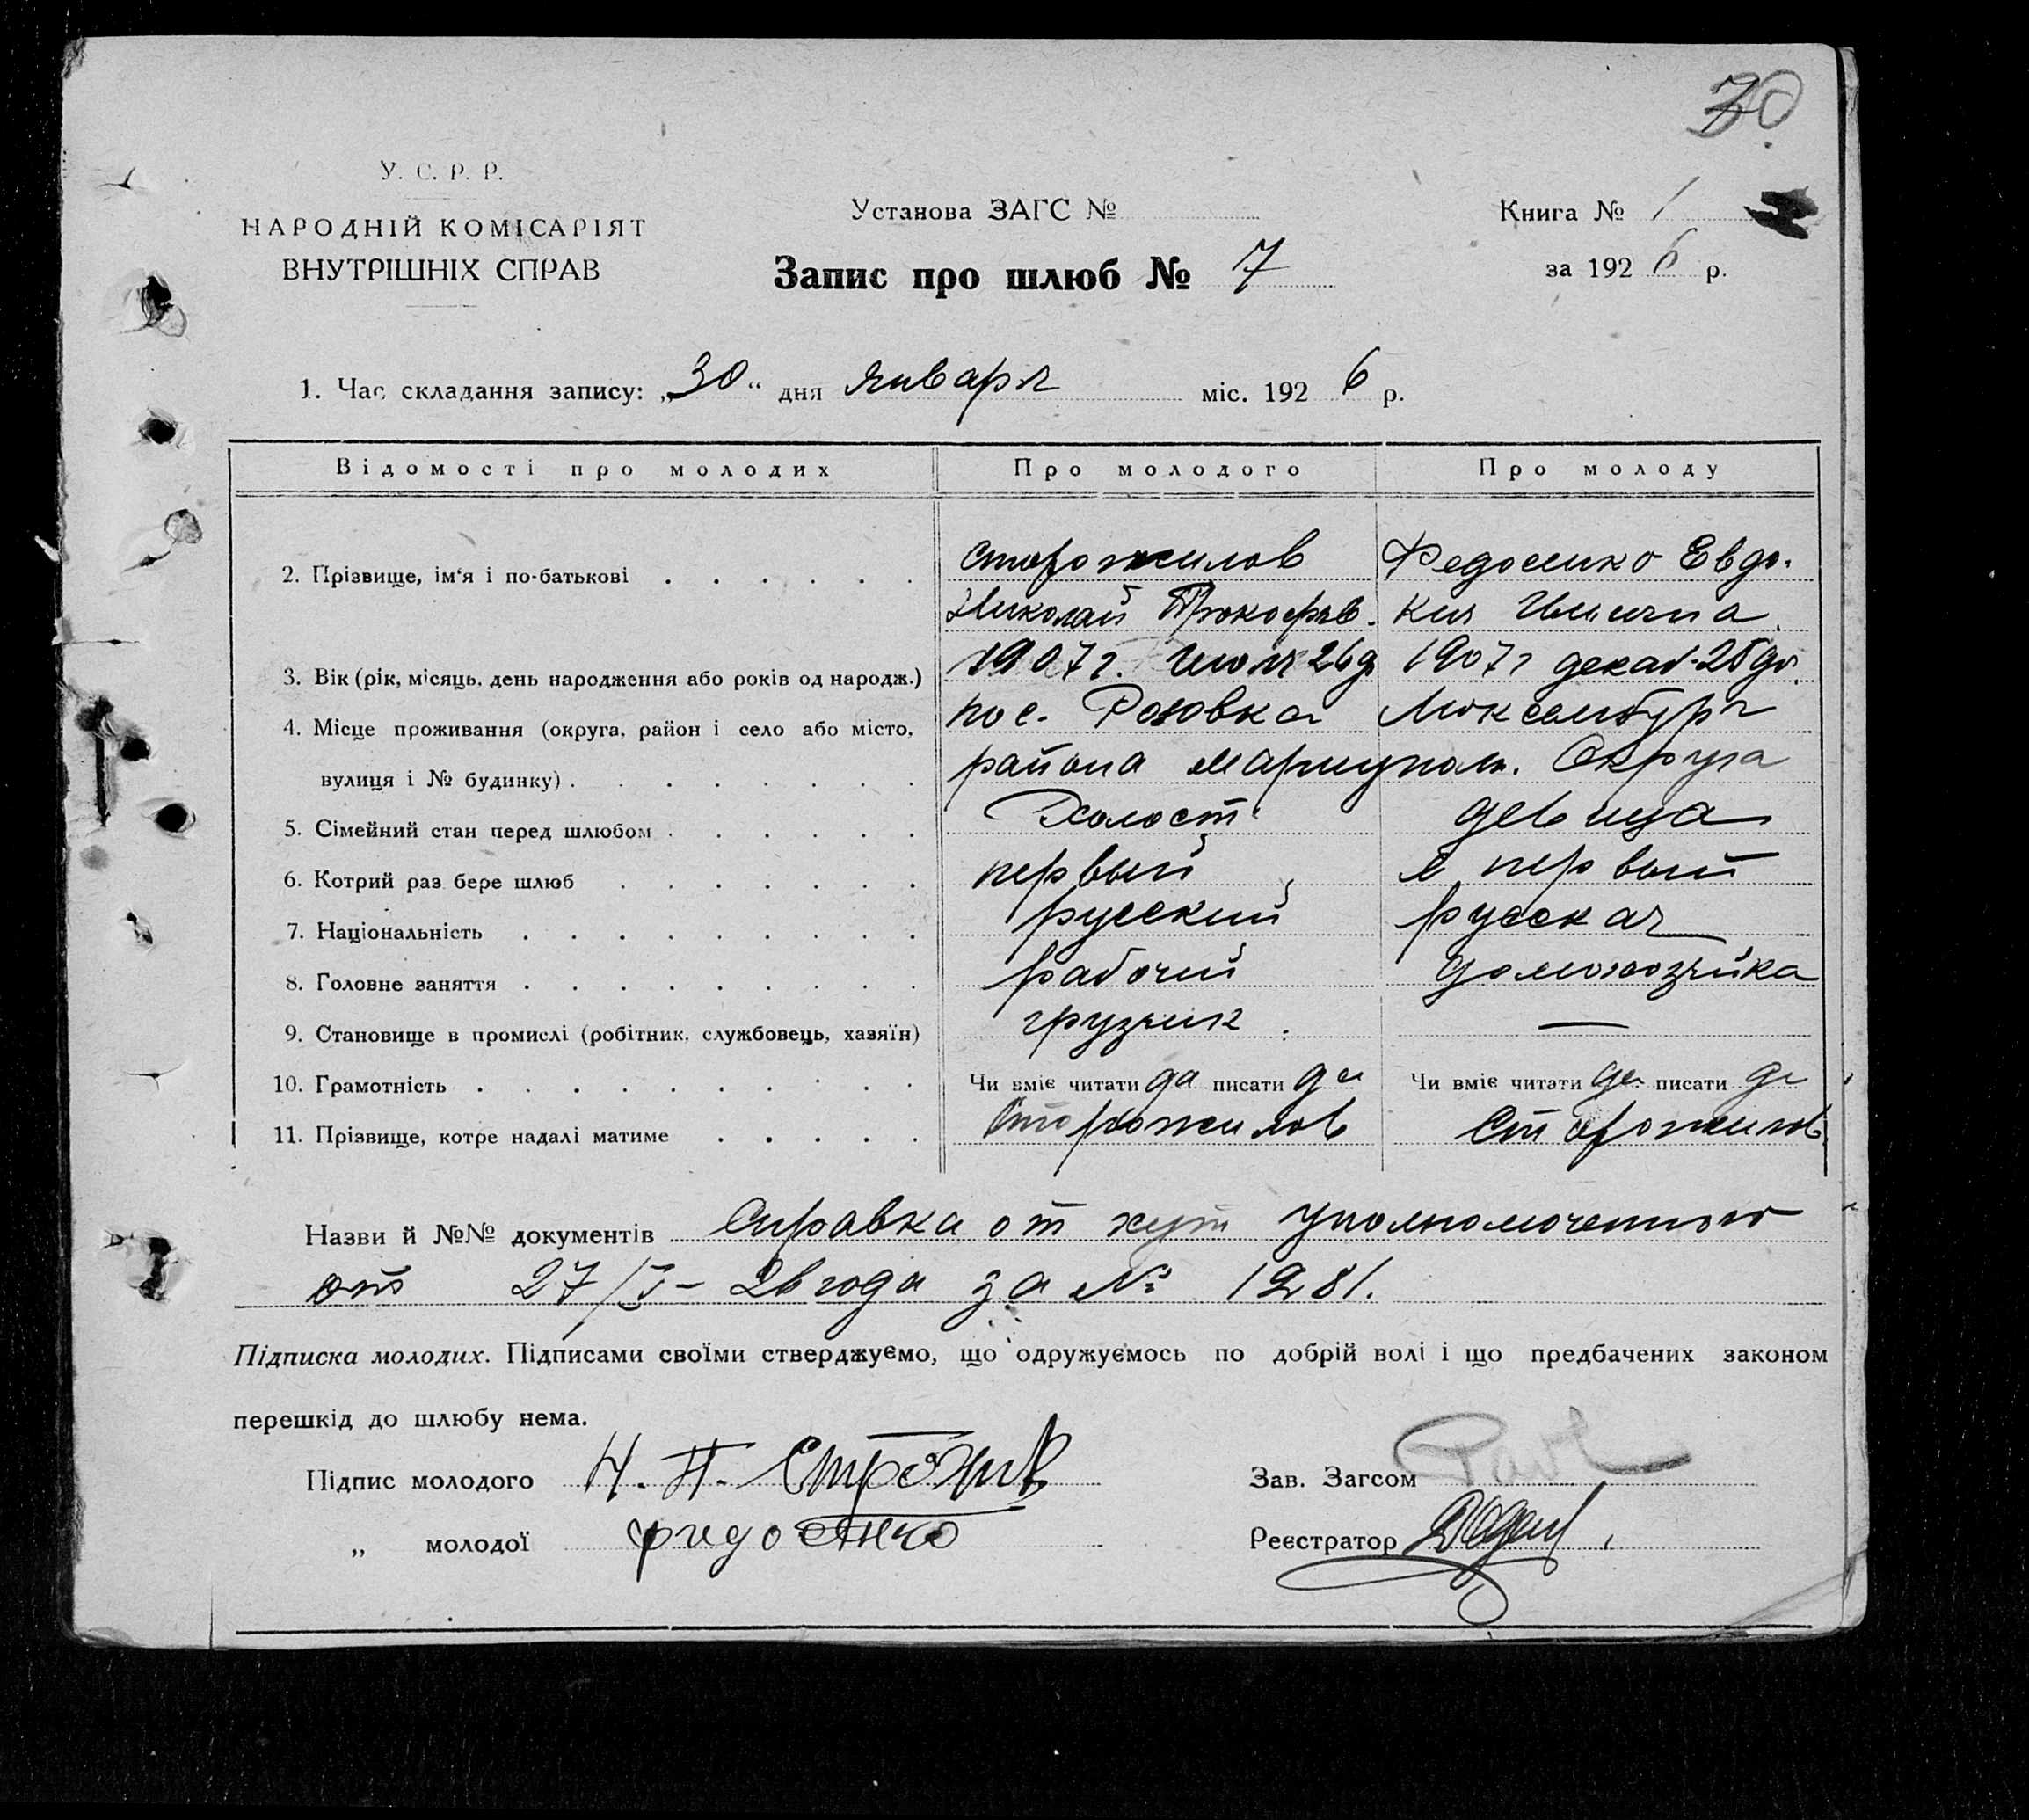 70
У. С. Р. Р.
НАРОДНІЙ КОМІСАРІЯТ
ВНУТРІШНІХ СПРАВ
Установа ЗАГС №
Книга № 1
Запис про шлюб № 7
за 1926 р.
1. Час складання запису: „30“ дня января міс. 1926 р.
Відомості про молодих Про молодого Про молоду
2. Прізвище, ім'я і по-батькові Сторожилов Федосенко Евдо-
Николай Прокофьев. кия
3. Вік (рік, місяць, день народження або років од народж.) 1907 г. 26 д 1907 г декаб. 25 дн.
4. Місце проживання (округа, район і село або місто, пос. Розовка Люксембург
вулиця і № будинку) района мариупол. Округа
5. Сімейний стан перед шлюбом Холост девица
6. Котрий раз бере шлюб первый первый
7. Національність русский русская
8. Головне заняття рабочий домохозяйка
9. Становище в промислі (робітник, службовець, хазяїн) грузчик. —
10. Грамотність Чи вміє читати да писати да Чи вміє читати да писати да
11. Прізвище, котре надалі матиме Сторожилов Сторожилов
Назви й №№ документів Справка от хут уполномоченного
от 27/I - 26 года за № 1281.
Підписка молодих. Підписами своїми стверджуємо, що одружуємось по добрій волі і що предбачених законом
перешкід до шлюбу нема.
Підпис молодого Н. П.
Зав. Загсом
„ молодої
Реєстратор